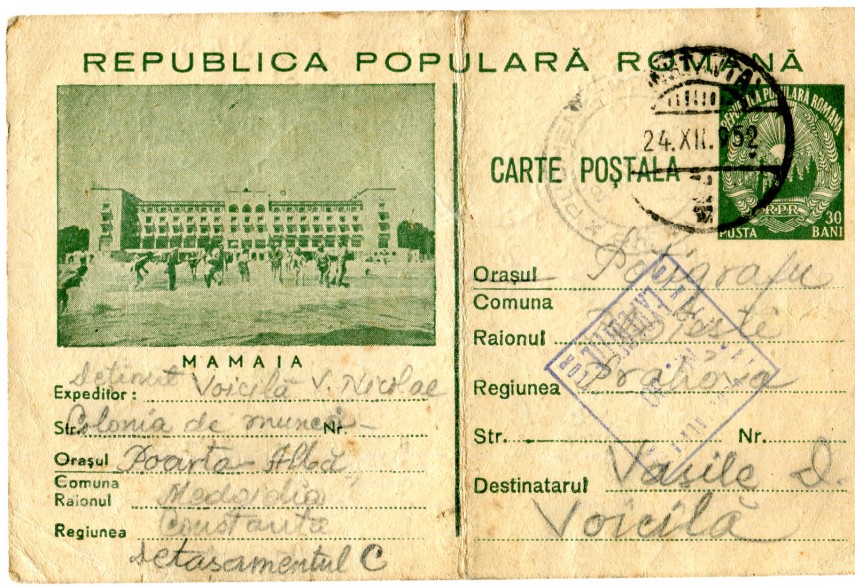 REPUBLICA POPULARĂ ROMÂNĂ
24.XII.952
REPUBLICA POPULARĂ ROMÂNĂ
RPR
POSTA 30 BANI
CARTE POȘTALA
MAMAIA
Deținut
Expeditor: Voicilă V. Nicolae
Str. Colonia de muncă Nr.
Orașul Poarta-Albă
Comuna
Raionul Medgidia
Regiunea Constanta
Detasamentul C
Orașul
Comuna
Raionul
Regiunea Prahova
Str. Nr.
Destinatarul Vasile D.
Voicilă